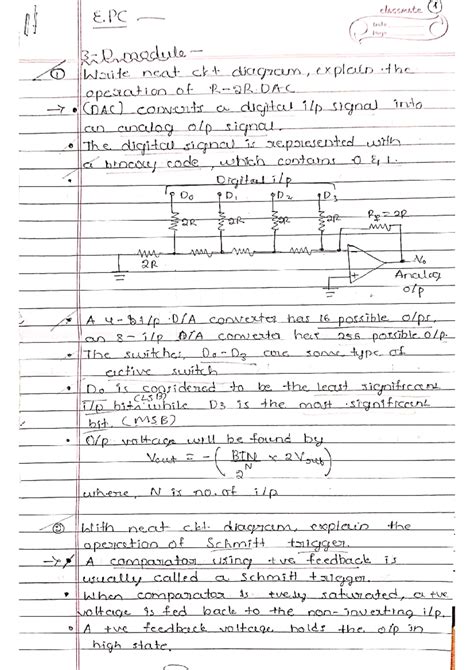 E.P.C
classmate
Date
Page
1
3rd module -
① Write neat ckt diagram, explain the
operation of R-2R DAC
→ • (DAC) converts a digital i/p signal into
an analog o/p signal.
• The digital signal is represented with
a binary code, which contains 0 & 1.
• Digital i/p
D0 D1 D2 D3
2R 2R 2R 2R RF = 2R
2R
- + Vo
Analog
o/p
• A 4-bit i/p D/A converter has 16 possible o/ps,
an 8-i/p D/A converter has 256 possible o/p.
• The switches, D0-D3 are some type of
active switch
• D0 is considered to be the least significant
i/p bits (LSB) while D3 is the most significant
bit. (MSB)
• O/p voltage will be found by
Vout = - ( BIN / 2^N × 2Vref )
where, N is no. of i/p
② With neat ckt diagram, explain the
operation of Schmitt trigger.
→ • A comparator using +ve feedback is
usually called a schmitt trigger.
• When comparator is +vely saturated, a +ve
voltage is fed back to the non-inverting i/p.
• A +ve feedback voltage holds the o/p in
high state.